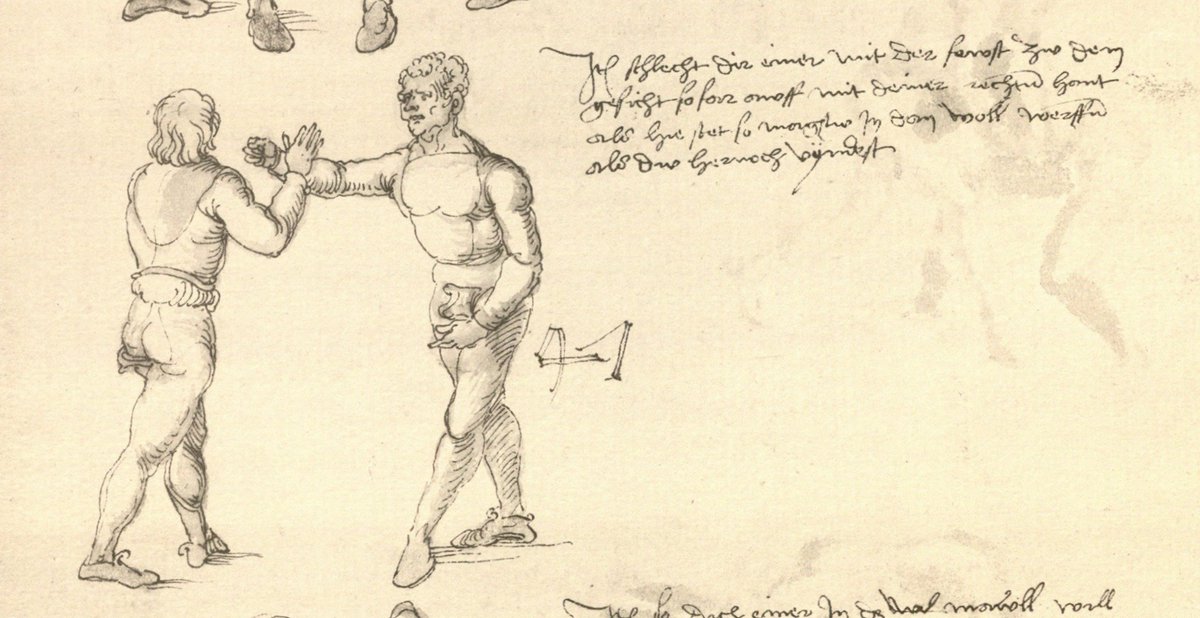 Itm schlecht dir einer mit der fawst zw dem
gesicht so far awff mit deiner rechtn hant
als hie stet so magstw in dem woll werffn
als dw hernoch vyndest
doch einer in woll